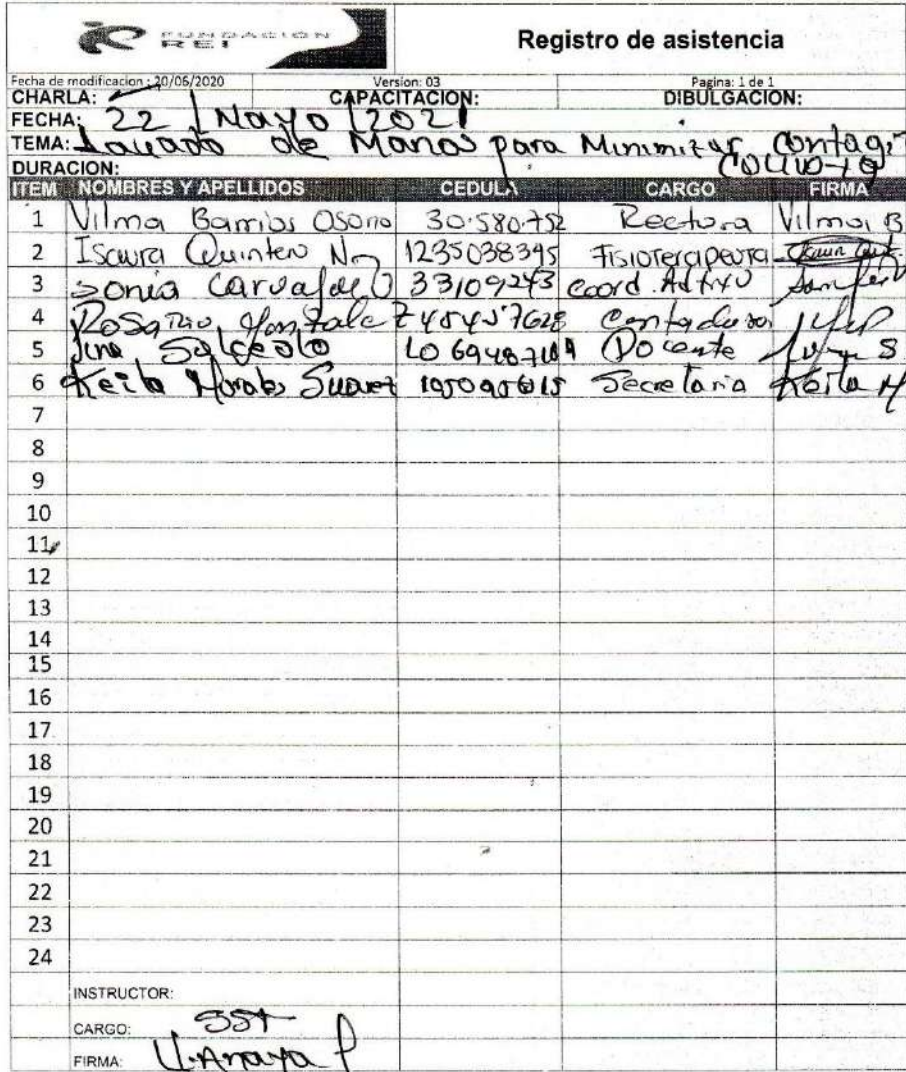 FUNDACION
REI
Registro de asistencia
Fecha de modificacion : 20/06/2020 Version: 03 Pagina: 1 de 1
CHARLA: CAPACITACION: DIBULGACION:
FECHA: 22 / Mayo / 2021
TEMA: Lavado de Manos para Minimizar Contagi
COVID-19
DURACION:
ITEM NOMBRES Y APELLIDOS CEDULA CARGO FIRMA
1 Vilma Barrios Osorio 30.580.752 Rectora Vilma B
2 Isaura Quintero N 1235038345 Fisioterapeuta
3 Sonia Carvajal O 33109243 Coord. Adtivo
4 Rosario Gonzalez 45457628 Contadora
5 Salcedo Docente
6 Keila Morales Suarez Secretaria Keila M
7
8
9
10
11
12
13
14
15
16
17
18
19
20
21
22
23
24
INSTRUCTOR:
CARGO: SST
FIRMA: Anaya P